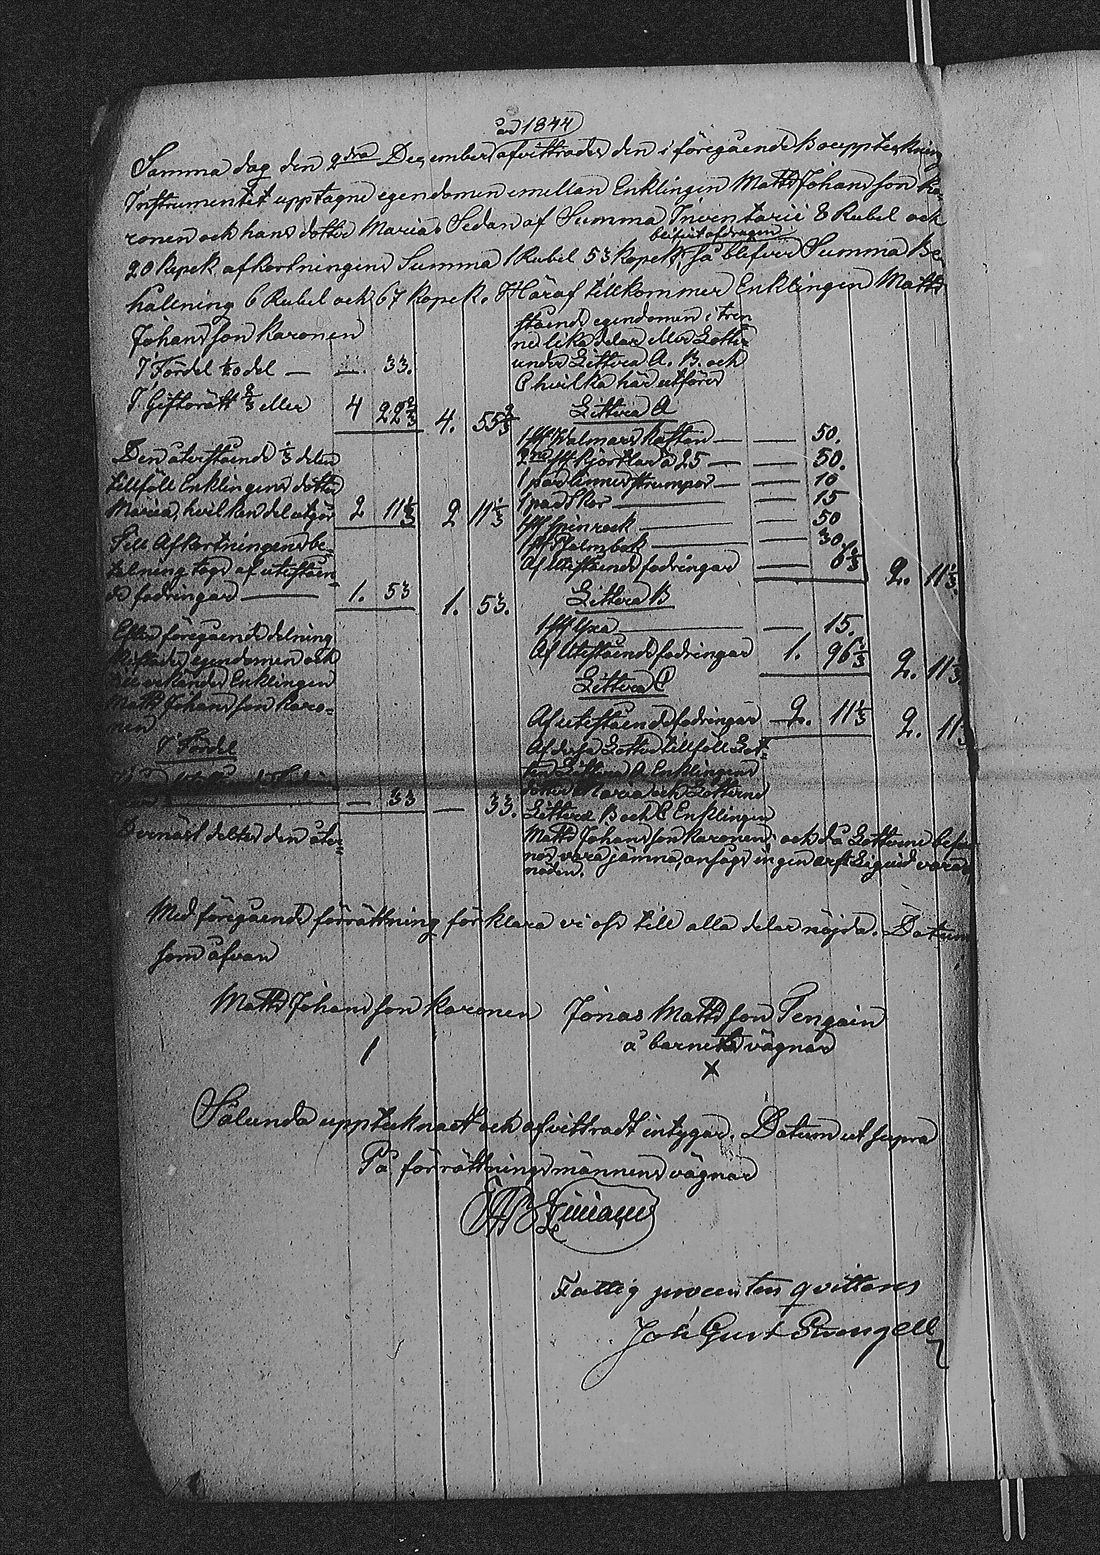 ad 1844
Samma dag den 2dra December afvittrades den i föregående Bouppteckning
Instrumentet upptagne egendomen emellan Enklingen Matts Johansson Ka-
ronen och hans dotter Maria. Sedan af Summa Inventarii 8 Rubel och
blifvit afdragen
20 Kopek afkortningens Summa 1 Rubel 53 Kopek, så blifver Summa Be-
hållning 6 Rubel och 67 Kopek. Häraf tillkommer Enklingen Matts
Johansson Karonen
I Fördel 1/20 del — — 33.
I Giftorätt 2/3 eller 4 22 2/3 4. 55 2/3
Den återstående 1/3 delen
tillföll Enklingens dotter
Maria, hvilken del utgör 2 11 1/3 2 11 1/3
Till Afkortningens be-
talning togs af utestäen-
de fodringar — 1. 53 1. 53.
Efter föregående delning
skiftades egendomen och
tillerkändes Enklingen
Matts Johansson Karo-
nen
I Fördel
— 33 — 33.
Dernäst deltes den åter-
stående egendomen i tren-
ne lika delar eller Lotter
under Littera A. B. och
C hvilka här utföres
Littera A
1 st Walmars Kaftan — — 50.
2ne st Skjortlar a 25 — — 50.
1 par linnes strumpor — — 10
1 par Skor — — 15
1 st Spinrock — — 50
1 st Psalmbok — — 30.
Af Utestående fodringar — 6 1/3 2. 11 1/3.
Littera B
1 st Yxa — — 15.
Af Utestående fodringar 1. 96 1/3 2. 11 1/3
Littera C
Af utestående fodringar 2. 11 1/3 2. 11
Af dessa Lotter tillföll Lot-
ten Littera A Enklingens
dotter Maria och Lotterne
Littera B och C Enklingen
Matts Johansson Karonen, och då Lotterne befun-
nos vara jämna, ansågs ingen arfs Liquid vara af
nöden.
Med föregående förrättning förklara vi oss till alla delar nöjda. Datum
som ofvan
Matts Johansson Karonen Jonas Mattsson Pengain
å barnets vägnar
X
Sålunda upptecknadt och afvittradt intygar. Datum ut supra
På förrättningsmännens vägnar
Fattig procenten qvitteras
Joh Gust Strengell